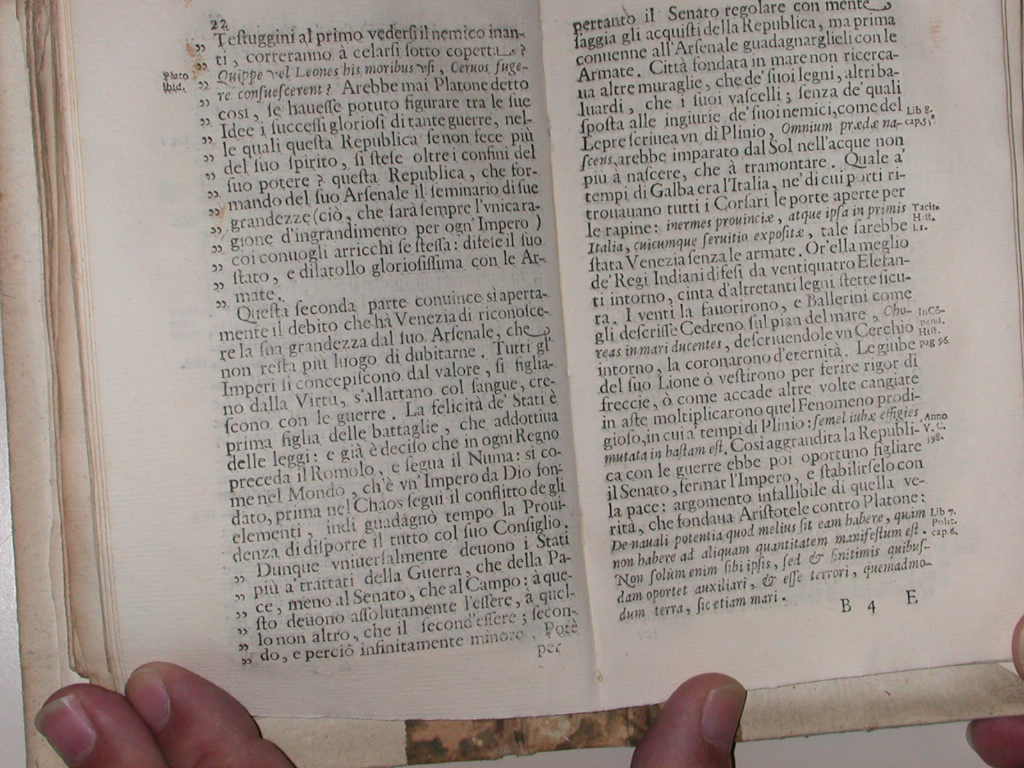 22
„ Teſtuggini al primo vederſi il nemico inan-
„ ti, correranno à celarſi ſotto coperta?
„ Quippe vel Leones his moribus vſi, Ceruos fuge-
Plato
ibid.
„ re conſueſcerent? Arebbe mai Platone detto
„ così, ſe haueſſe potuto figurare tra le ſue
„ Idee i ſucceſſi glorioſi di tante guerre, nel-
„ le quali queſta Republica ſe non fece più
„ del ſuo ſpirito, ſi ſteſe oltre i confini del
„ ſuo potere? queſta Republica, che for-
„ mando del ſuo Arſenale il ſeminario di ſue
„ grandezze (ciò, che ſarà ſempre l'vnica ra-
„ gione d'ingrandimento per ogn'Impero)
„ coi conuogli arricchì ſe ſteſſa: difeſe il ſuo
„ ſtato, e dilatollo glorioſiſſima con le Ar-
„ mate.
Queſta ſeconda parte conuince sì aperta-
mente il debito che hà Venezia di riconoſce-
re la ſua grandezza dal ſuo Arſenale, che
non reſta più luogo di dubitarne. Tutti gl'
Imperi ſi concepiſcono dal valore, ſi figlia-
no dalla Virtù, s'allattano col ſangue, cre-
ſcono con le guerre. La felicità de' Stati è
prima figlia delle battaglie, che addottiua
delle leggi: e già è deciſo che in ogni Regno
preceda il Romolo, e ſegua il Numa: sì co-
me nel Mondo, ch'è vn' Impero da Dio fon-
dato, prima nel Chaos ſeguì il conflitto de gli
elementi, indi guadagnò tempo la Proui-
denza di diſporre il tutto col ſuo Conſiglio.
„ Dunque vniuerſalmente deuono i Stati
„ più a' trattati della Guerra, che della Pa-
„ ce, meno al Senato, che al Campo: à que-
„ ſto deuono aſſolutamente l'eſſere, à quel-
„ lo non altro, che il ſecond'eſſere; ſecon-
„ do, e perciò infinitamente minore. Potè
per
pertanto il Senato regolare con mente
ſaggia gli acquiſti della Republica, ma prima
conuenne all'Arſenale guadagnarglieli con le
Armate. Città fondata in mare non ricerca-
ua altre muraglie, che de' ſuoi legni, altri ba-
luardi, che i ſuoi vaſcelli; ſenza de' quali
ſpoſta alle ingiurie de' ſuoi nemici, come del
Lepre ſcriuea vn di Plinio, Omnium prædæ na-
Lib 8.
cap.55.
ſcens, arebbe imparato dal Sol nell'acque non
più à naſcere, che à tramontare. Quale a'
tempi di Galba era l'Italia, ne' di cui porti ri-
trouauano tutti i Corſari le porte aperte per
le rapine: inermes prouinciæ, atque ipſa in primis
Tacit.
Hiſt.
l.1.
Italia, cuicumque ſeruitio expoſitæ, tale ſarebbe
ſtata Venezia ſenza le armate. Or'ella meglio
de' Regi Indiani difeſi da ventiquatro Elefan-
ti intorno, cinta d'altretanti legni ſtette ſicu-
ra. I venti la fauorirono, e Ballerini come
gli deſcriſſe Cedreno ſul pian del mare, Cho-
reas in mari ducentes, deſcriuendole vn Cerchio
Hiſt.
pag 96.
intorno, la coronarono d'eternità. Le giube
del ſuo Lione ò veſtirono per ferire rigor di
freccie, ò come accade altre volte cangiate
in aſte moltiplicarono quel Fenomeno prodi-
gioſo, in cui a' tempi di Plinio: ſemel iubæ effigies
mutata in haſtam eſt. Così aggrandita la Republi-
Anno
V. C.
198.
ca con le guerre ebbe poi oportuno figliare
il Senato, fermar l'Impero, e ſtabilirſelo con
la pace: argomento infallibile di quella ve-
rità, che fondaua Ariſtotele contro Platone:
De nauali potentia quod melius ſit eam habere, quim
Lib 7.
Polit.
cap.6.
non habere ad aliquam quantitatem manifeſtum eſt.
Non ſolùm enim ſibi ipſis, ſed & finitimis quibuſ-
dam oportet auxiliari, & eſſe terrori, quemadmo-
dum terra, ſic etiam mari.
B 4 E